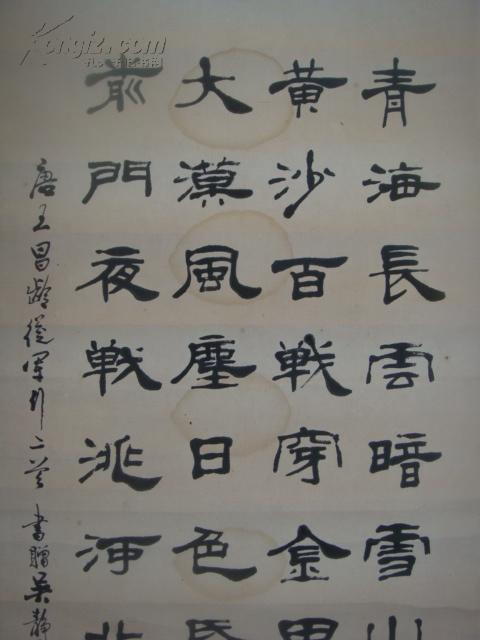 青海長雲暗雪山
黃沙百戰穿金甲
大漠風塵日色昏
前門夜戰洮河北
唐王昌齡從軍行二首 書贈吳靜
Kongfz.com
孔夫子旧书网